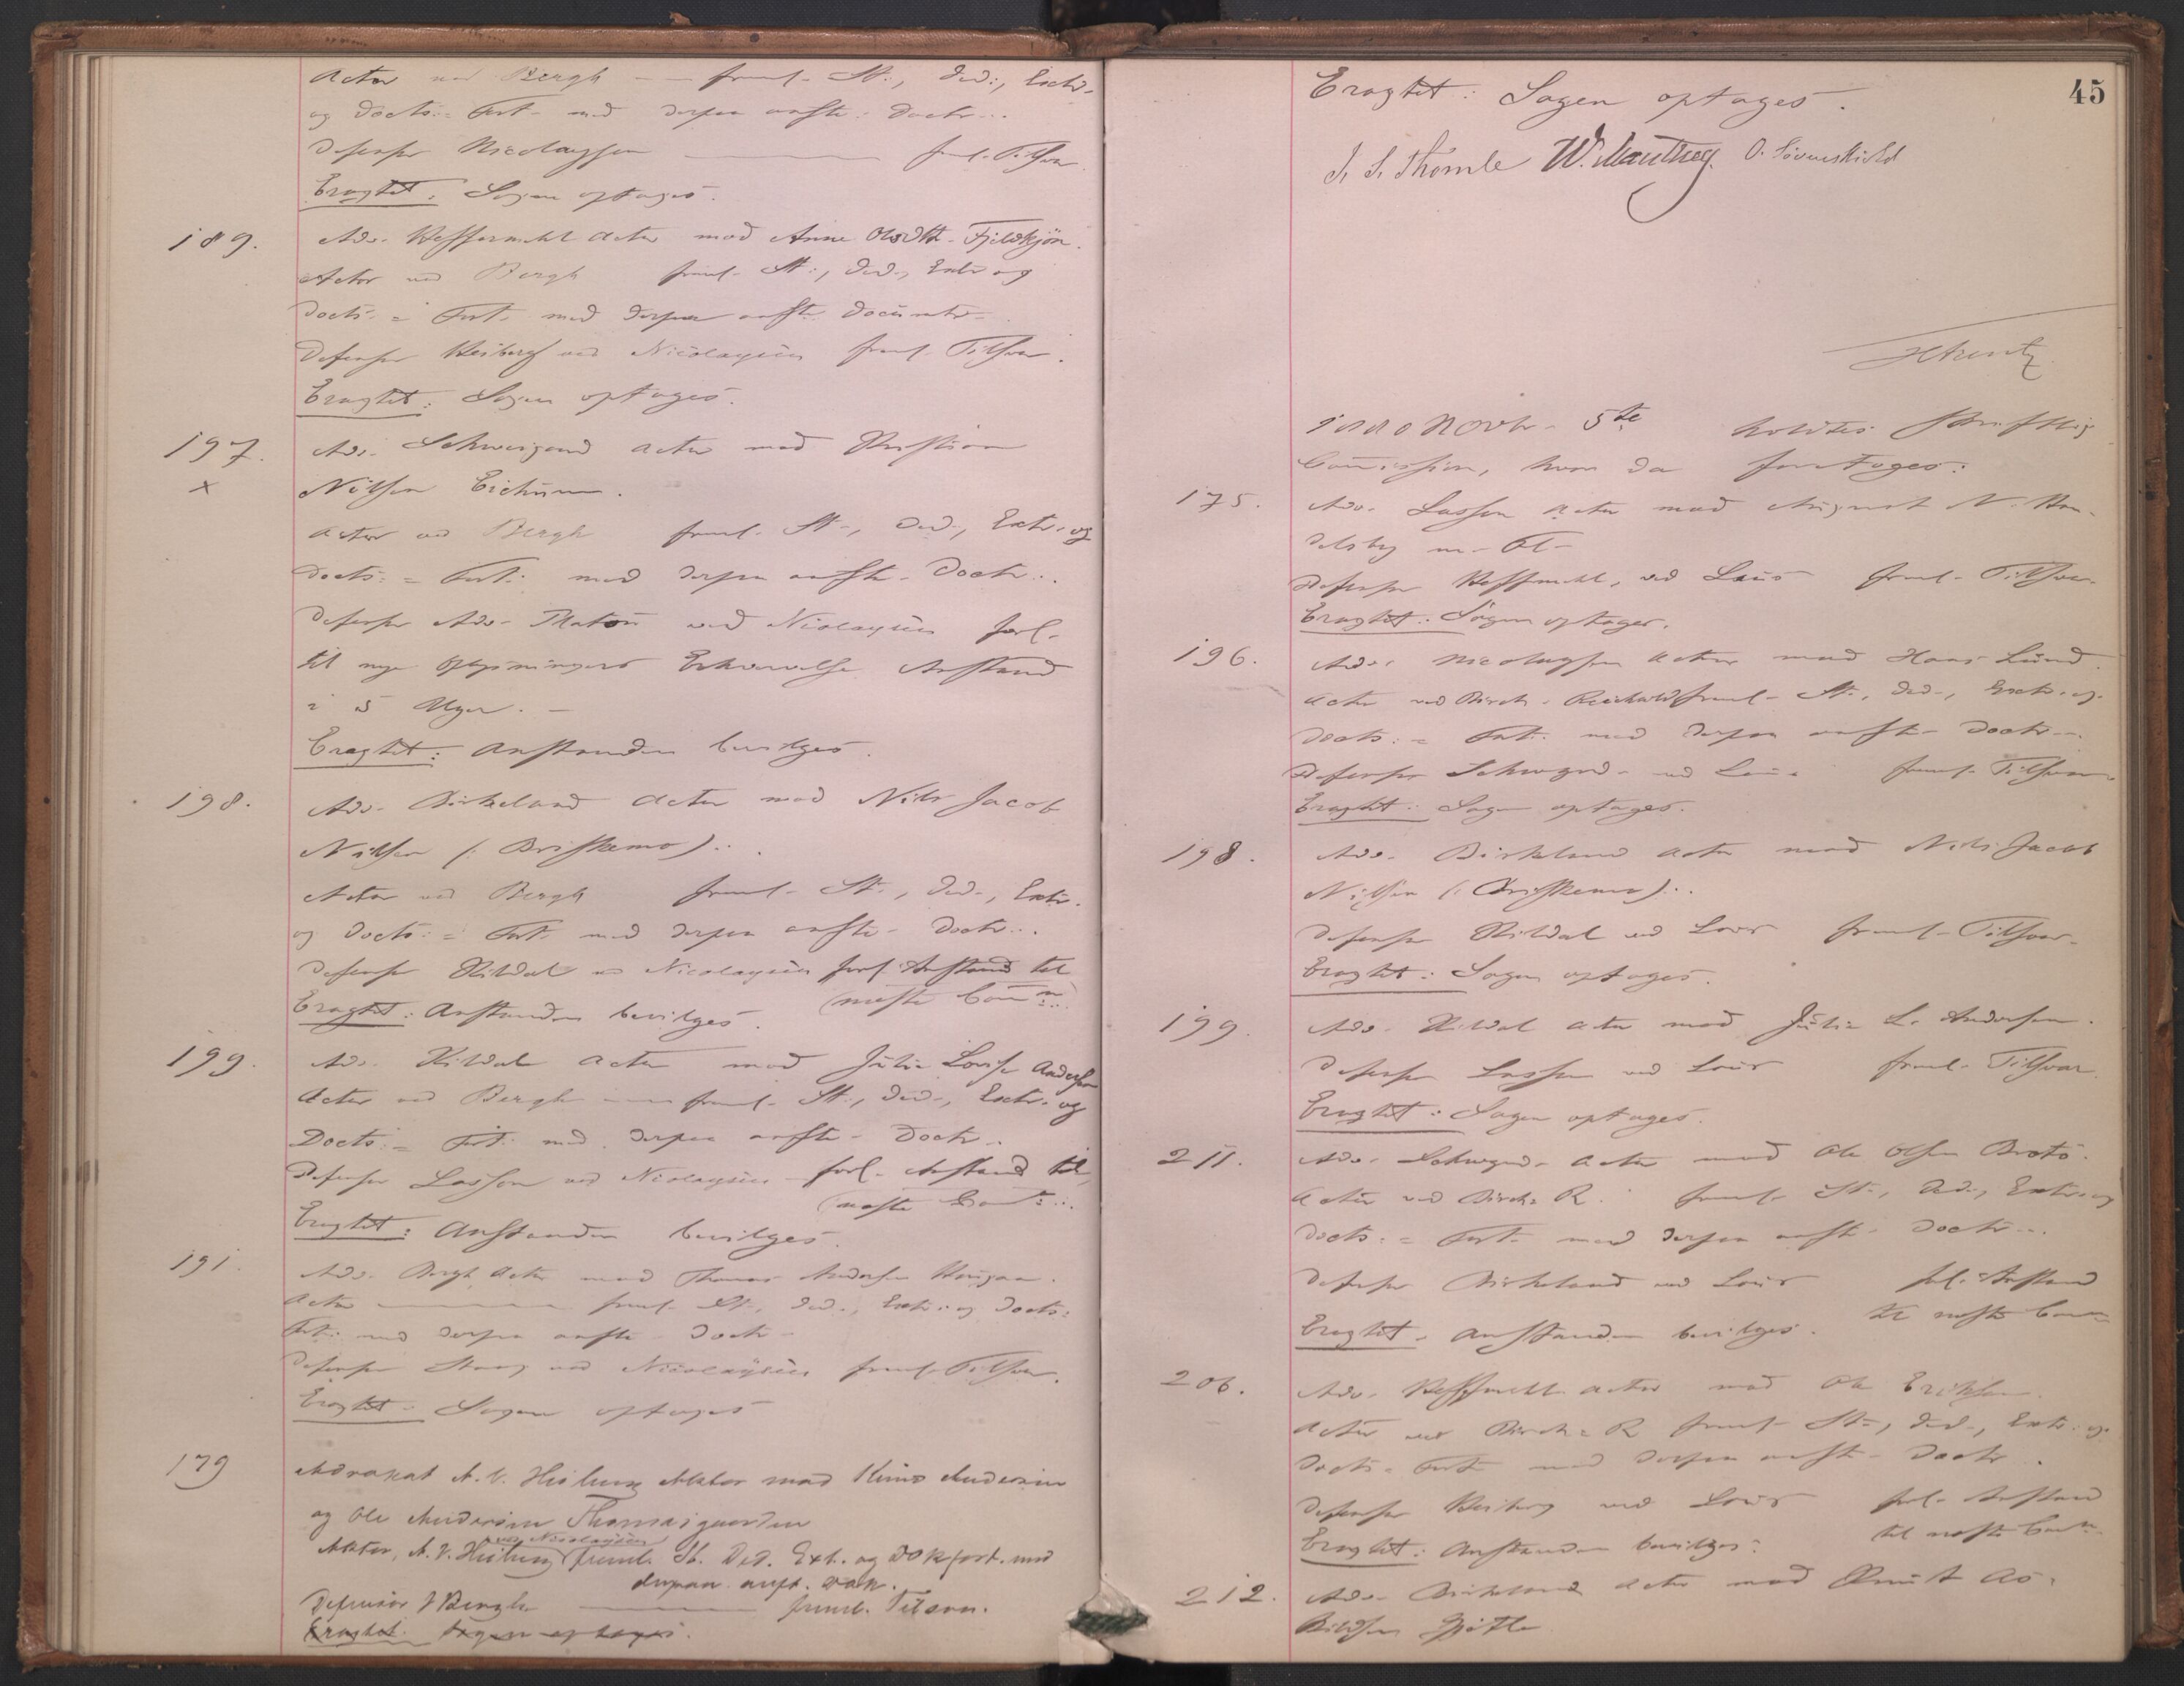 Actor ved Bergh — freml. St:, Ded:, Extr.
og Docts:= Fort. med derpaa anfte. Doctr...
Defensor Nicolaysen — freml. Tilsvar.
Eragtet: Sagen optages.
189. Adv. Hesselberg Actor mod Anne Olsdtr. Fjeldkjøn.
Actor ved Bergh freml. St:, Ded., Extr. og
Docts:= Fort. med derpaa anfte. Documtr.
Defensor Heiberg ved Nicolaysen freml. Tilsvar.
Eragtet: Sagen optages.
197. Adv. Schweigaard Actor mod Kristian
x Nilsen
Actor ved Bergh freml. St., Ded., Extr. og
Docts:= Fort: med derpaa anfte. Doctr...
Defensor Adv. Platou ved Nicolaysen forl.
til nye Oplysningers Erhvervelse Anstand
i 5 Uger. —
Eragtet: Anstanden bevilges.
198. Adv. Birkeland Actor mod Nils Jacob
Nilsen (: Briskemo)..
Actor ved Bergh freml. St., Ded., Extr.
og Docts:= Fort. med derpaa anfte. Doctr...
Defensor Kildal ved Nicolaysen forl. Anstand til
Eragtet: Anstanden bevilges. (næste Comm:
199. Adv. Kildal Actor mod Julie Lovise Andersen
Actor ved Bergh — freml. St:, Ded., Extr. og
Docts:= Fort: med derpaa anfte. Doctr..
Defensor Lasson ved Nicolaysen forl. Anstand til
(næste Com:
Eragtet: Anstanden bevilges.
191. Adv. Bergh Actor mod Thomas Andersen
Actor — freml. St., Ded., Extr. og Docts:
Fort: med derpaa anfte. Doctr.
Defensor ved Nicolaysen freml. Tilsvar.
Eragtet: Sagen optages
179 Advokat A. V. Heiberg Aktor mod Andersen
og Ole Andersen Thomasgaarden
ved Nicolaysen
Aktor, A. V. Heiberg freml. St. Ded. Ext. og Dokfort. med
derpaa anft. Dok.
Defensor J Bergh — freml. Tilsvar.
Eragtet. Sagen optages.
45
Eragtet: Sagen optages.
J. S. Thomle W. Manthey. O. Løvenskiold
1880 Novbr. 5te holdtes Skriftlig
Commission, hvor da foretoges:
175. Adv. Lasson Actor mod August N.
m. Fl.
Defensor Hesselberg, ved Lous freml. Tilsvar.
Eragtet: Sagen optages.
196. Adv. Nicolaysen Actor mod Hans Lund.
Actor ved Birch-Reichenwald freml. St., Ded., Extr. og
Docts:= Fort: med derpaa anfte. Doctr...
Defensor Schweigrd. ved Lous freml. Tilsvar.
Eragtet: Sagen optages.
198. Adv. Birkeland Actor mod Nils Jacob
Nilsen (: Briskemo)..
Defensor Kildal ved Lous freml. Tilsvar.
Eragtet: Sagen optages.
199. Adv. Kildal Actor mod Julie L. Andersen.
Defensor Lasson ved Lous freml. Tilsvar.
Eragtet: Sagen optages.
211. Adv. Schweigrd. Actor mod Ole Olsen
Actor ved Birch-R. freml. St., Ded., Extr. og
Docts:= Fort. med derpaa anfte. Doctr...
Defensor Birkeland ved Lous forl. Anstand
Eragtet. Anstanden bevilges. til næste Com
206. Adv. Hesselberg Actor mod Ole Eriksen.
Actor ved Birch-R freml. St., Ded., Extr. og
Docts.= Fort. med derpaa anfte. Doctr.
Defensor Heiberg ved Lous forl. Anstand
Eragtet: Anstanden bevilges. til næste Com
212. Adv. Birkeland Actor mod Knut